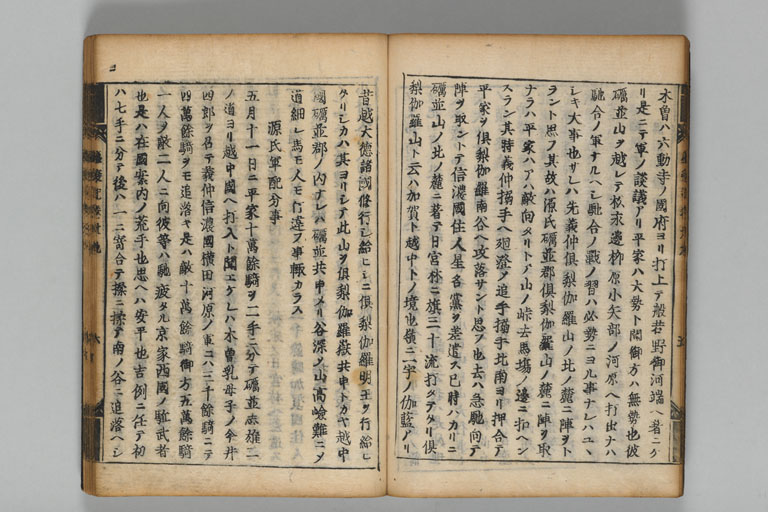 木曽ハ六動寺ノ國府ヨリ打上テ般若野御河端ヘ著ニケ
リ是ニテ軍ノ談議アリ平家ハ大勢ト聞御方ハ無勢也彼
礪並山ヲ越レテ松永邊柳原小矢部ノ河原ヘ打出ナハ
馳合ノ軍ナルヘシ馳合ノ戰ノ習ハ必勢ニヨル事ナレハユヽ
シキ大事也サレハ先義仲倶梨伽羅山ノ北ノ麓ニ陣ヲト
ラント思フ其故ハ源氏礪並郡倶梨伽羅山ノ麓ニ陣ヲ取
ナラハ平家ハアハ敵向タリトテ山ノ峠去馬場ノ邊ニ扣ヘン
スラン其時義仲搦手ヘ廻澄メ追手搦手北南ヨリ押合テ
平家ヲ倶梨伽羅南谷ヘ攻落サント思フ也去ハ急馳向テ
陣ヲ取ントテ信濃國住人星名黨ヲ差遣ス巳時ハカリニ
礪並山ノ北ノ麓ニ著テ日宮林ニ旗三十流打タテタリ倶
梨伽羅山ト云ハ加賀ト越中トノ境也嶺ニ一宇ノ伽藍アリ
昔越大德諸國修行シ給ヒシニ倶梨伽羅明王ヲ行給ヒ
タリシカハ其ヨリシテ此山ヲ倶梨伽羅嶽共申トカヤ越中
國礪並郡ノ内ナレハ礪並共申メリ谷深ノ山高嶮難ニメ
道細レ馬モ人モ行違フ事輙カラス
源氏軍配分事
五月十一日ニ平家十萬餘騎ヲ二手ニ分テ礪並志雄二
ノ道ヨリ越中國ヘ打入ト聞エケレハ木曽乳母子ノ今井
四郎ヲ召テ義仲信濃國橫田河原ノ軍ニハ三千餘騎ニテ
四萬餘騎ヲモ追落キ是ハ敵十萬餘騎御方五萬餘騎
一人ヲ敵二人ニ向彼等ハ馳疲タル京家西國ノ駈武者
也是ハ在國案内ノ荒手也思ヘハ安平也吉例ニ任テ初
ハ七手ニ分テ後ハ一ニ寄合テ揉ニ揉テ南ノ谷ニ追落ヘシ